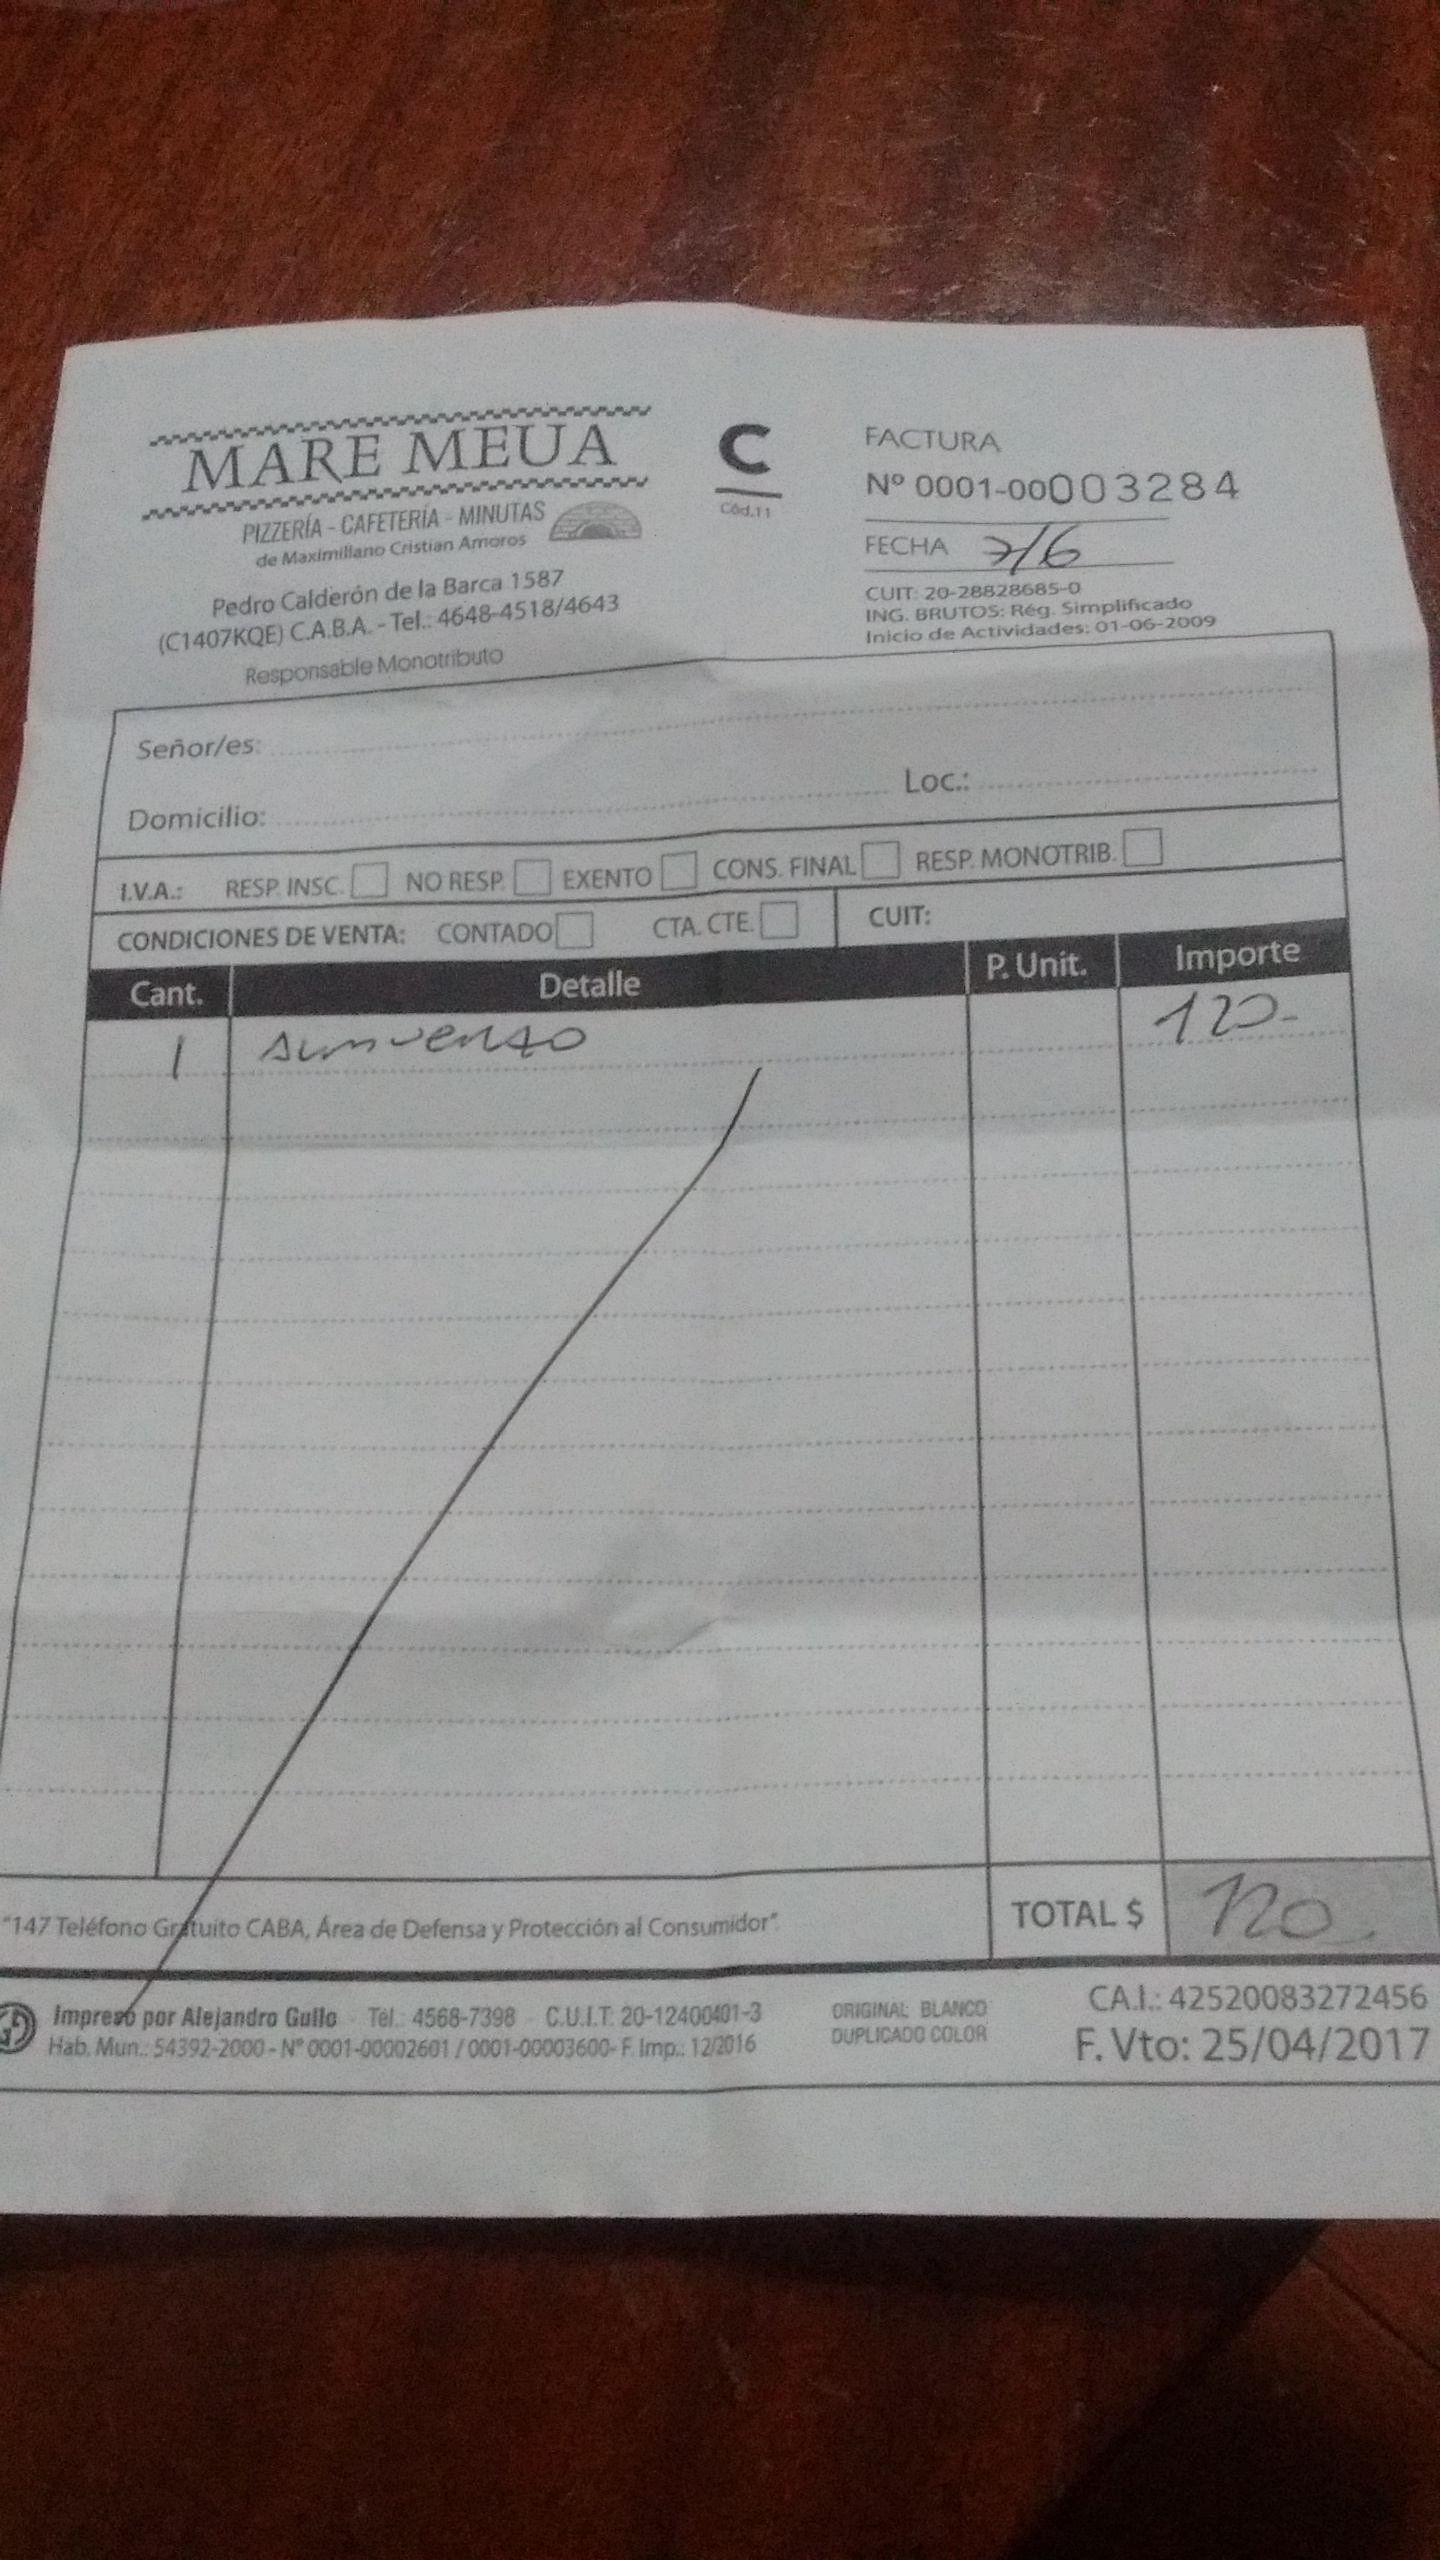 MARE MEUA
PIZZERÍA - CAFETERÍA - MINUTAS
de Maximiliano Cristian Amoros
Pedro Calderón de la Barca 1587
(C1407KQE) C.A.B.A. - Tel.: 4648-4518/4643
Responsable Monotributo
C
Cód.11
FACTURA
Nº 0001-00003284
FECHA 7/6
CUIT: 20-28828685-0
ING. BRUTOS: Rég. Simplificado
Inicio de Actividades: 01-06-2009
Señor/es:
Domicilio: Loc.:
I.V.A.: RESP. INSC. NO RESP. EXENTO CONS. FINAL RESP. MONOTRIB.
CONDICIONES DE VENTA: CONTADO CTA. CTE. CUIT:
Cant. Detalle P. Unit. Importe
1 120-
"147 Teléfono Gratuito CABA, Área de Defensa y Protección al Consumidor". TOTAL $ 120
Impreso por Alejandro Gullo - Tel.: 4568-7398 - C.U.I.T: 20-12400401-3
Hab. Mun.: 54392-2000 - Nº 0001-00002601 / 0001-00003600- F. Imp.: 12/2016
ORIGINAL: BLANCO
DUPLICADO COLOR
CA.I.: 42520083272456
F. Vto: 25/04/2017